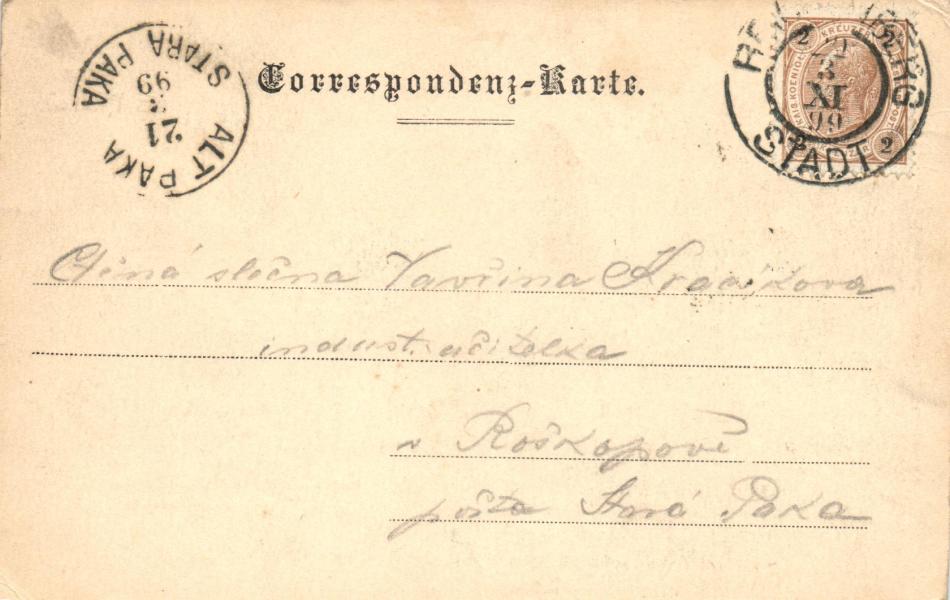 Correspondenz-Karte.
ALT PAKA
STARA PAKA
21
99
STADT
3
XI
99
2
2
2
KREUZER
Ctěná slečna Vavřina Kracíkova
indust. učitelka
v Roškopově
pošta Stará Paka